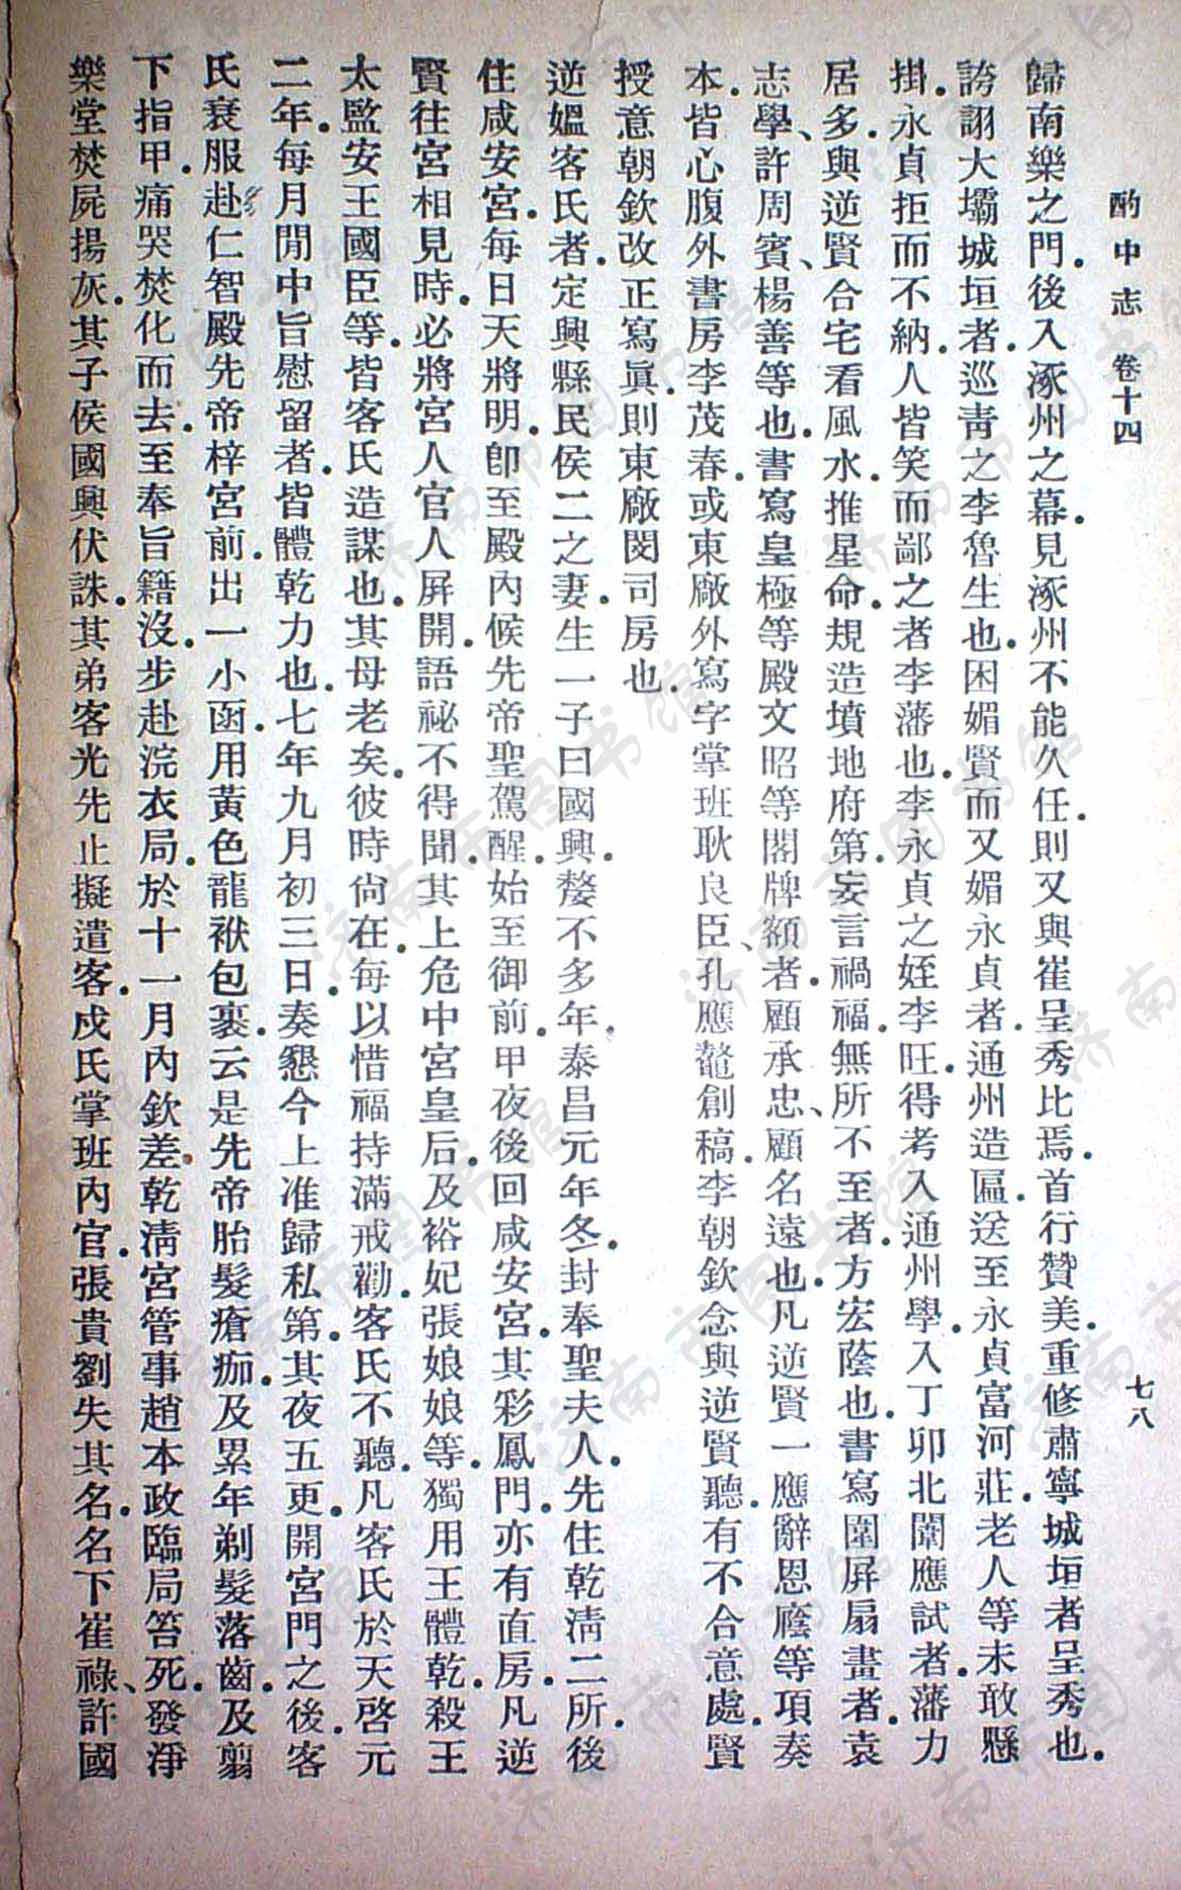 酌中志 卷十四 七八
歸南樂之門.後入涿州之幕.見涿州不能久任.則又與崔呈秀比焉.首行贊美.重修肅寧城垣者呈秀也.
誇詡大壩城垣者.巡靑之李魯生也.困媚賢而又媚永貞者.通州造匾.送至永貞富河莊.老人等未敢懸
掛.永貞拒而不納.人皆笑而鄙之者李藩也.李永貞之姪李旺.得考入通州學.入丁卯北闈應試者.藩力
居多.與逆賢合宅看風水.推星命.規造墳地府第.妄言禍福.無所不至者.方宏蔭也.書寫圍屏扇畫者.袁
志學、許周賓、楊善等也.書寫皇極等殿文昭等閣牌額者.顧承忠、顧名遠也.凡逆賢一應辭恩廕等項奏
本.皆心腹外書房李茂春.或東廠外寫字掌班耿良臣、孔應鼇創稿.李朝欽念與逆賢聽.有不合意處.賢
授意朝欽改正寫眞.則東廠閔司房也.
逆媼客氏者.定興縣民侯二之妻.生一子曰國興.嫠不多年.泰昌元年冬.封奉聖夫人.先住乾淸二所.後
住咸安宮.每日天將明.卽至殿內候先帝聖駕醒.始至御前.甲夜後回咸安宮.其彩鳳門.亦有直房.凡逆
賢往宮相見時.必將宮人官人屏開.語祕不得聞.其上危中宮皇后.及裕妃張娘娘等.獨用王體乾.殺王
太監安王國臣等.皆客氏造謀也.其母老矣.彼時尙在.每以惜福持滿戒勸.客氏不聽.凡客氏於天啓元
二年.每月閒中旨慰留者.皆體乾力也.七年九月初三日.奏懇今上准歸私第.其夜五更.開宮門之後.客
氏衰服赴仁智殿先帝梓宮前.出一小函.用黃色龍袱包裹.云是先帝胎髮瘡痂.及累年剃髮落齒.及翦
下指甲.痛哭焚化而去.至奉旨籍沒.步赴浣衣局.於十一月內欽差乾淸宮管事趙本政臨局笞死.發淨
樂堂焚屍揚灰.其子侯國興伏誅.其弟客光先止擬遣客.戍氏掌班內官.張貴劉失其名.名下崔祿、許國